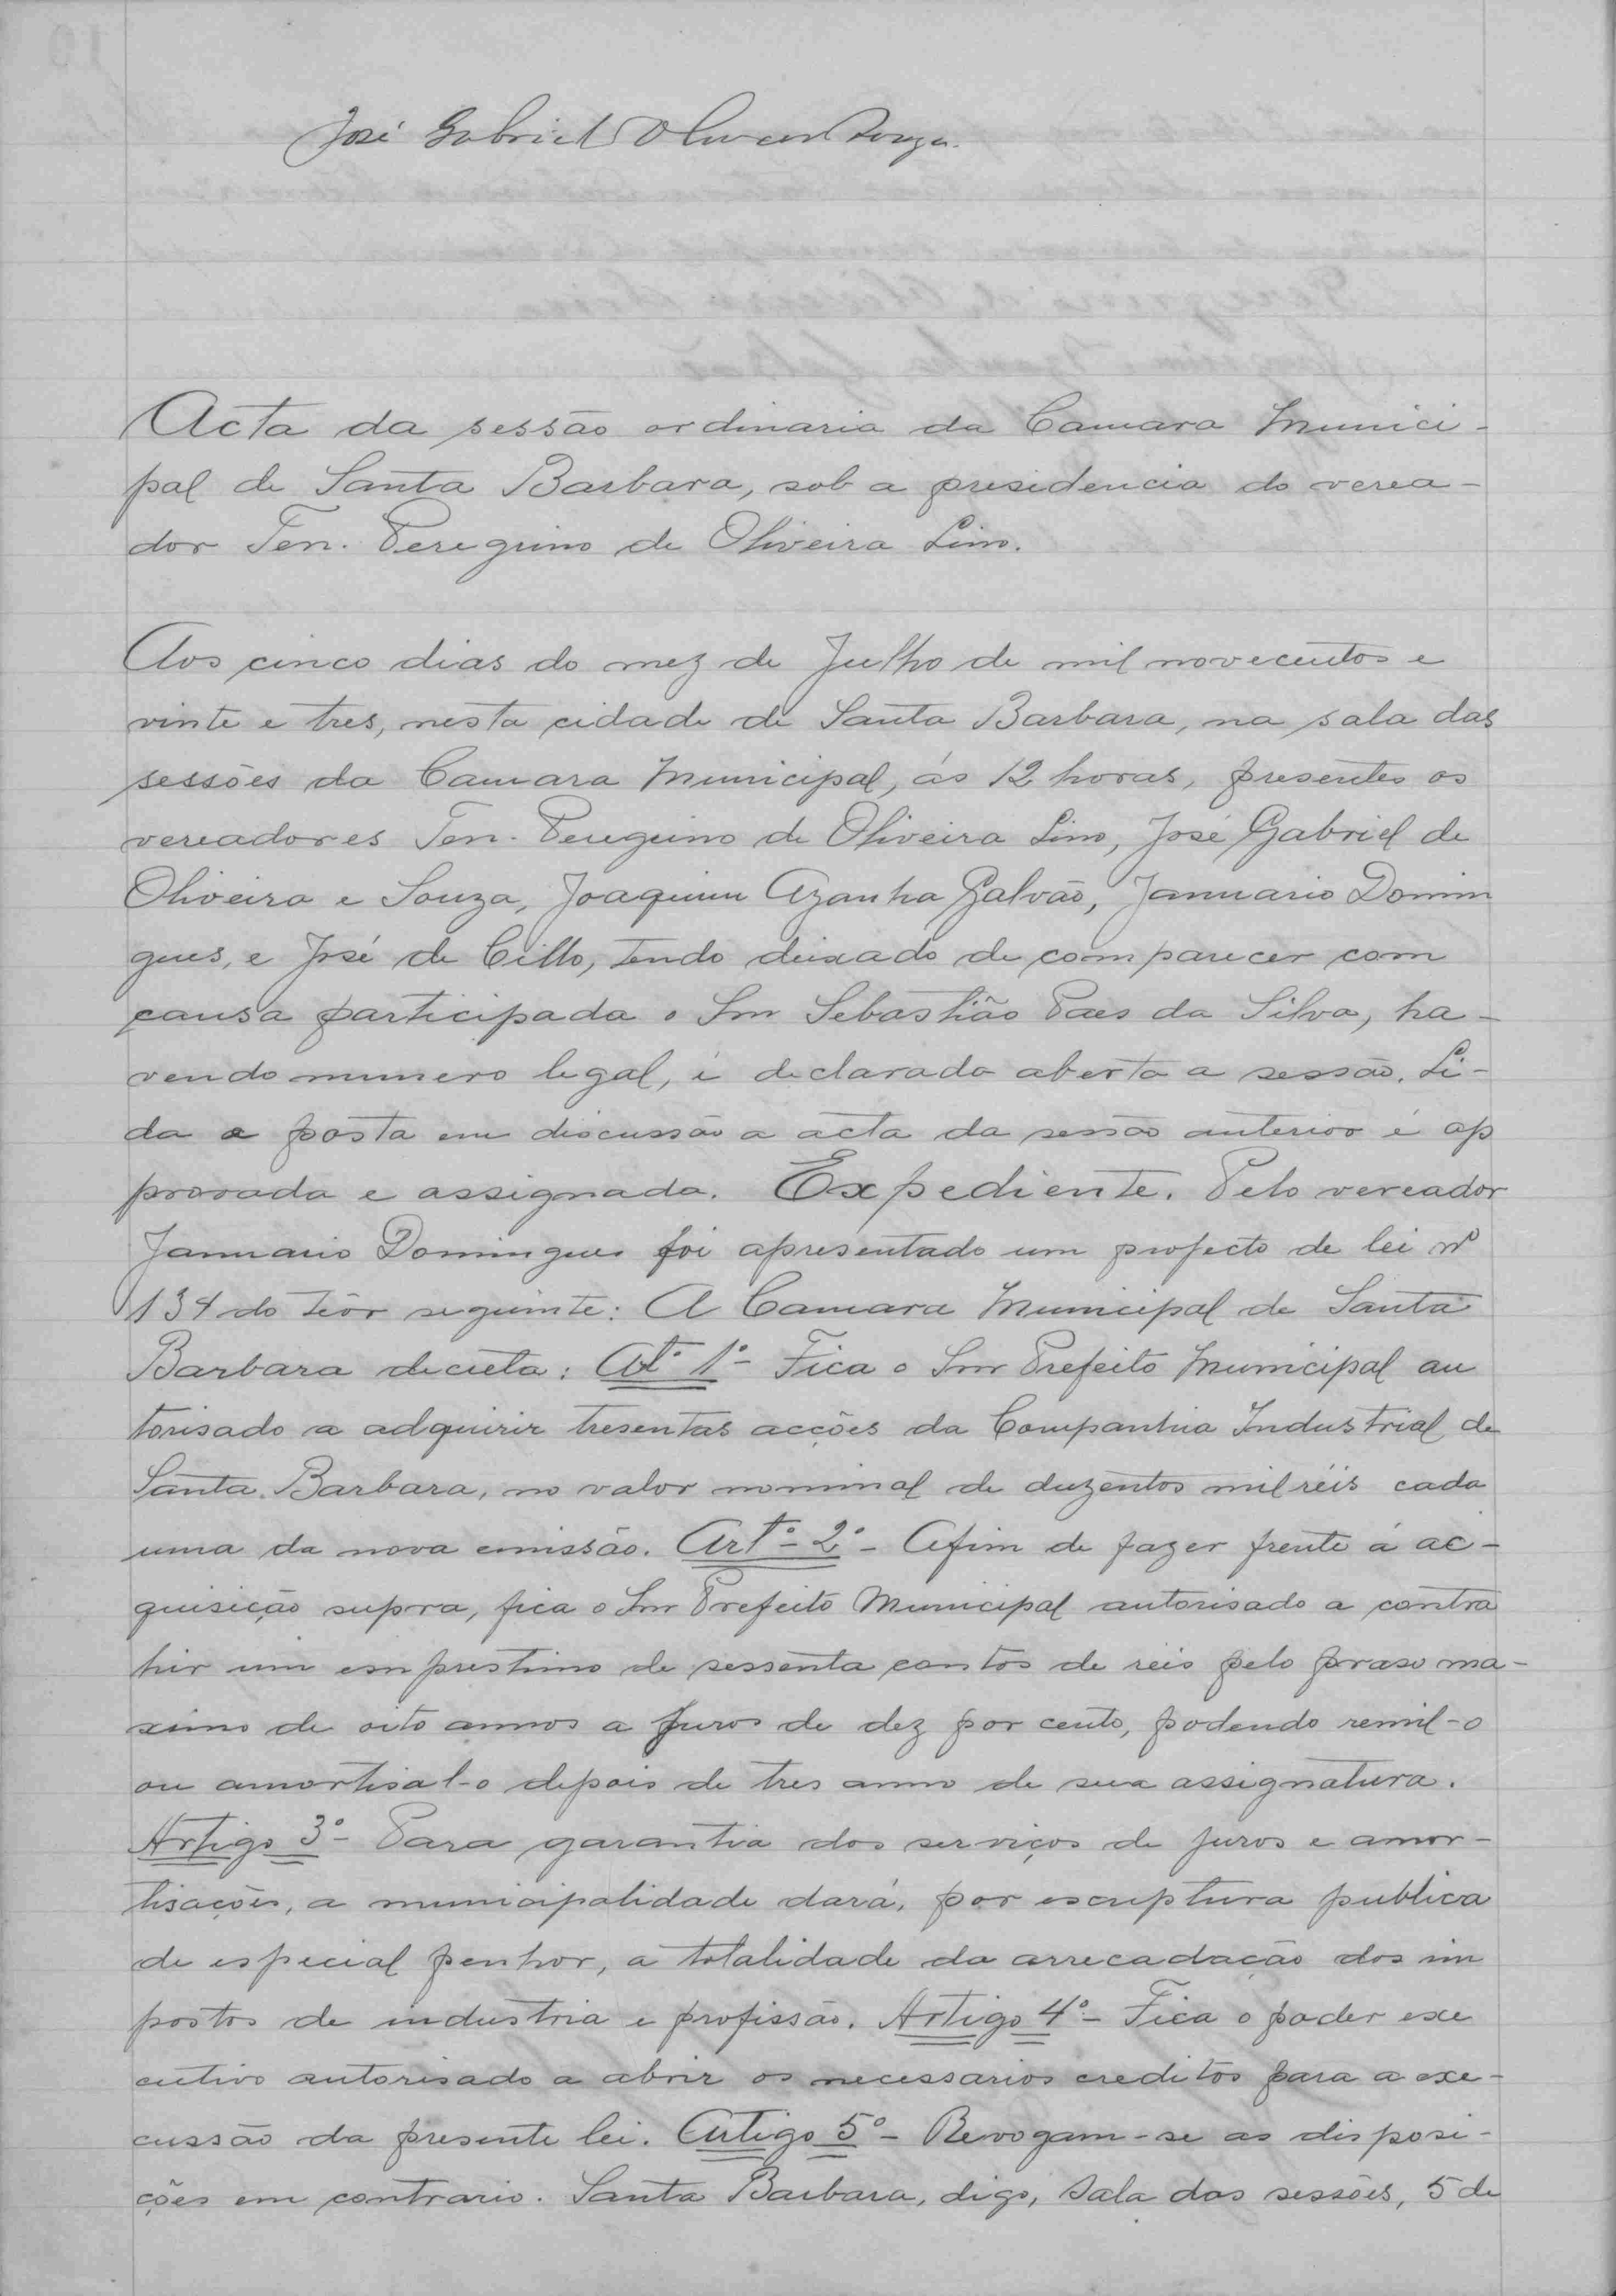 José Gabriel Oliveira Souza.
Acta da sessão ordinaria da Camara Munici-
pal de Santa Barbara, sob a presidencia do verea-
dor Ten. Peregrino de Oliveira Lino.
Aos cinco dias do mez de Julho de mil novecentos e
vinte e tres, nesta cidade de Santa Barbara, na sala das
sessões da Camara Municipal, ás 12 horas, presentes os
vereadores Ten. Peregrino de Oliveira Lino, José Gabriel de
Oliveira e Souza, Joaquim Azanha Galvão, Januario Domin
gues, e José de Cillo, tendo deixado de comparecer com
causa participada o Snr Sebastião Paes da Silva, ha-
vendo numero legal, é declarada aberta a sessão. Li-
da e posta em discussão a acta da sessão anterior é ap
provada e assignada. Expediente. Pelo vereador
Januario Domingues foi apresentado um projecto de lei nº
134 do teôr seguinte: A Camara Municipal de Santa
Barbara decreta: Atº 1º - Fica o Snr Prefeito Municipal au
torisado a adquirir tresentas acções da Companhia Industrial de
Santa Barbara, no valor nominal de duzentos mil réis cada
uma da nova emissão. Artº - 2º - Afim de fazer frente á ac-
quisição supra, fica o Snr Prefeito Municipal autorisado a contra
hir um emprestimo de sessenta contos de réis pelo praso ma-
ximo de oito annos a juros de dez por cento, podendo remil-o
ou amortisal-o depois de tres anno de sua assignatura.
Artigo 3º - Para garantia dos serviços de juros e amor-
tisações, a municipalidade dará, por escriptura publica
de especial penhor, a totalidade da arrecadação dos im
postos de industria e profissão. Artigo 4º - Fica o poder exe
cutivo autorisado a abrir os necessarios creditos para a exe-
cussão da presente lei. Artigo 5º - Revogam-se as disposi-
ções em contrario. Santa Barbara, digo, Sala das sessões, 5 de